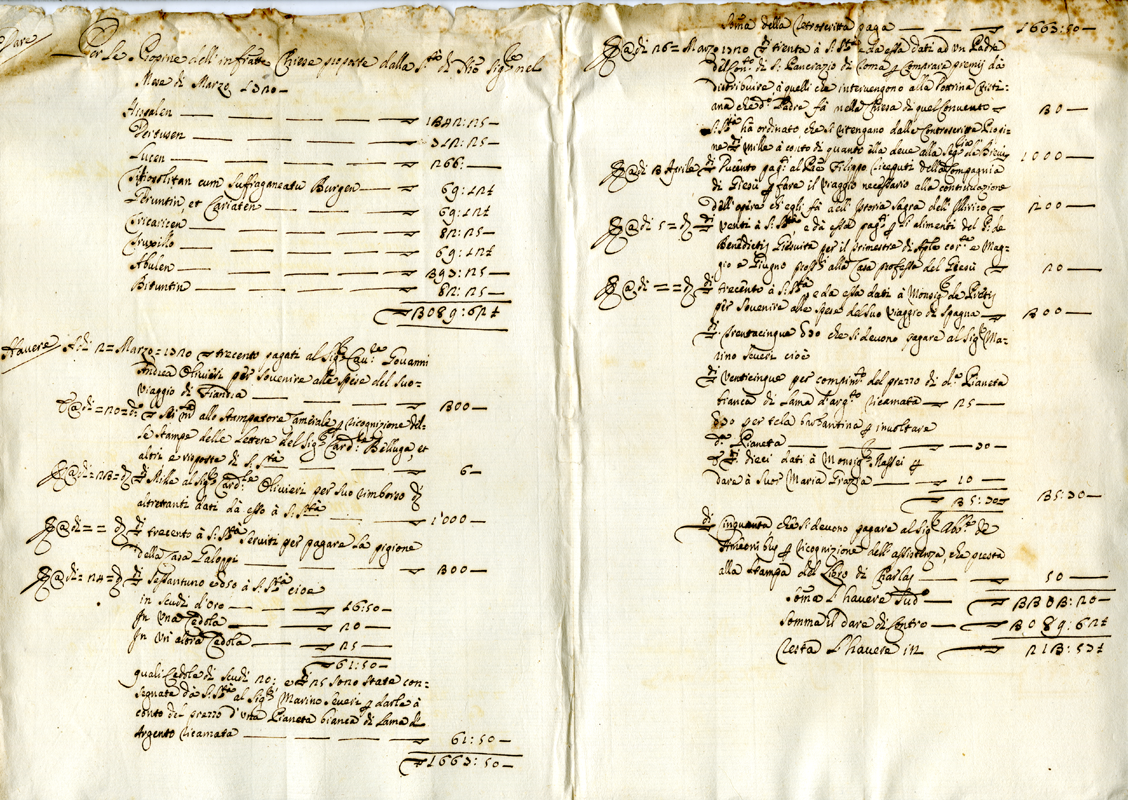 Dare
Per le Propine dell'infratte Chiese proposte dalla S.tà di N'ro Sig.re nel
Mese di Marzo 1720 —
Hispalen — 1342:25 —
Pertusen — 712:25 —
Lucen — 266: —
Metropolitan cum suffraganeatu Burgen — 69:12½
Feruntin et Cariaten — 69:12½
82:25 —
Truxillo — 69:12½
Abulen — 397:25 —
Bituntin — 82:25 —
3089:62½
Havere A di 2 = Marzo = 1720 trecento pagati al Sig.r Cav.re Giovanni
Andrea Olivieri per sovenire alle spese del suo
viaggio di Fiandra — 300 —
@ di = 20 = d.o sei m.ta allo Stampatore Camerale p ricognizione del
le stampe delle Lettere del Sig.r Card.le Belluga, et
altri e risposte di S. S.tà — 6 —
@ di = 23 = d.o Mille al Sig.r Card.le Olivieri per suo rimborso di
altrettanti dati da esso à S. S.tà — 1000 —
@ di = = d.o trecento à S. S.tà serviti per pagare la pigione
della Casa Galoppi — 300 —
@ di = 24 = d.o sessantuno e 50 à S. S.tà cioe
in scudi d'oro — 16:50 —
In una Cedola — 20 —
In un'altra Cedola — 25 —
61:50 —
quali Cedole di scudi 20: e di 25 sono state con=
segnate da S. S.tà al Sig.r Marino Severi p darle à
conto del prezzo d'una Pianeta bianca di Lama di
Argento ricamata — 61:50 —
1667:50 —
Som̃a della retroscritta paga — 1667:50 —
@ di 26 = Marzo 1720 trenta à S. S.tà da essa dati ad un Padre
del Con.to di S. Pancrazio di Roma p comprare premij da
distribuire à quelli che intervengono alla Dottrina Cristi=
ana che d.o Padre fà nella Chiesa di quel Convento — 30 —
S. S.tà ha ordinato che si ritengano dalle Controscritte Propi=
ne mille à conto di quanto ella deve alla 1000 —
@ di 3 Aprile Ducento pag.ti al P.re Filippo della Compagnia
di Giesù p fare il viaggio necessario alla continuazione
dell'opere ch'egli fà dell'Istoria Sagra dell'Illirico — 200 —
@ di 5 = d.o venti à S. S.tà e da essa pag.ti p gl'alimenti del P. de
Benedictis Giesuita per il trimestre di Aple cor.te e Mag=
gio e Giugno pross.i alla Casa professa del Giesù — 20 —
@ di = = d.o trecento à S. S.tà e da essa dati à Monsig.r de
per sovenire alle spese del suo viaggio di Spagna — 300 —
trentacinque e 70 che si devono pagare al Sig.r Ma=
rino Severi cioè
venticinque per compim.to del prezzo di d.a Pianeta
bianca di Lama d'arg.to ricamata — 25 —
70 per tela p involtare
d.a Pianeta — :70 —
dieci dati à Monsig.r Massei p
dare à Suor Maria Grazia — 10 —
35:70 35:70 —
Cinquanta che si devono pagare al Sig.r Ab.te de
p ricognizione dell'assistenza, che presta
alla stampa del Libro di — 50 —
Som̃a L'havere Sud.o — 3303:20 —
Somma il dare di contro — 3089:62½
Resta L'havere in — 213:57½